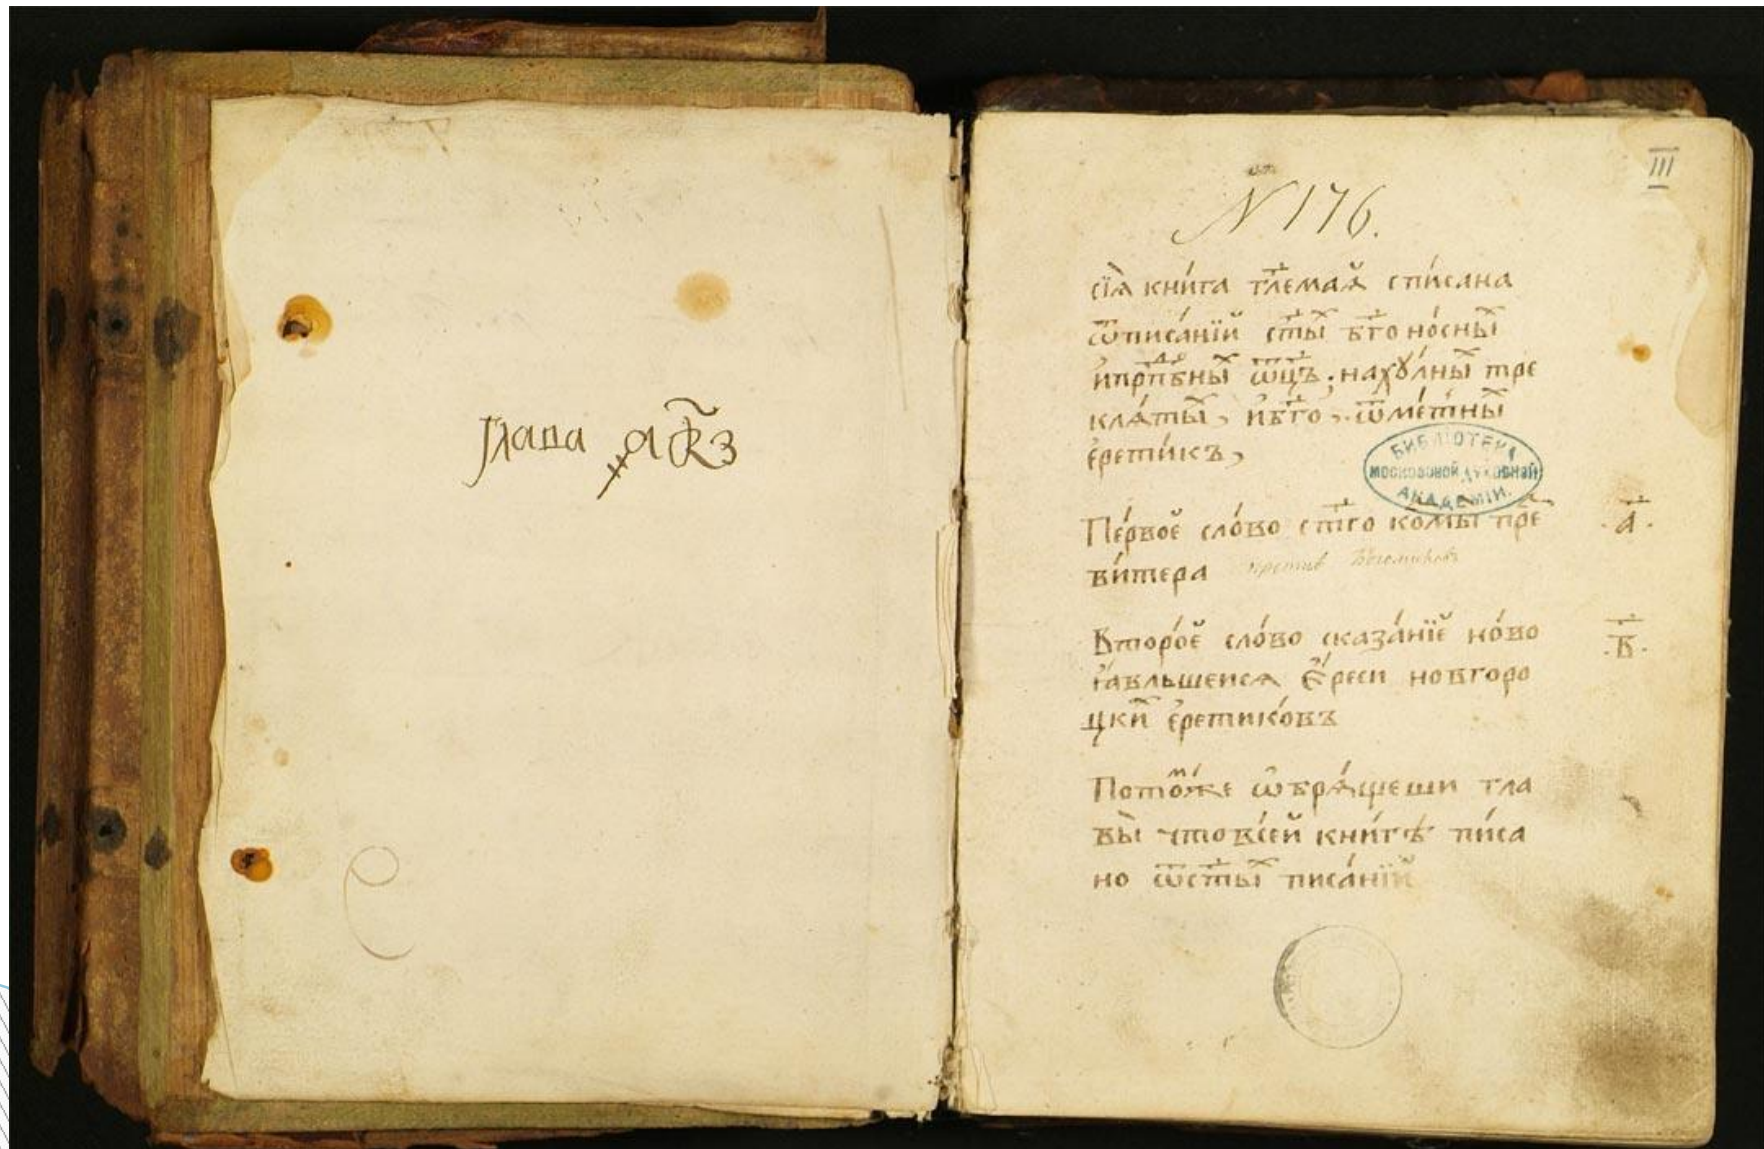 глава ҂а҃ркз
III
N 176.
сїѧ̀ кни́га гл҃емаѧ̆ спи́сана
ѿписа́нїй ст҃ы́х бг҃оно́сны́х
и҆прпⷣбны́х ѿц҃ъ, нахꙋ́лны́х тре
клѧ́ты́х, и҆бг҃о, ѿме́тны́х
є҆рети́къ,
БИБЛІОТЕКА
МОСКОВСКОЙ ДУХОВНОЙ
АКАДЕМІИ.
Пе́рвоє̆ сло́во ст҃го козмы̀ пре .а҃.
ви́тера против Богомиловъ
Второ́є̆ сло́во сказа́нїє̆ но́во .в҃.
ꙗ҆вльшеисѧ є҆́реси новгоро
цкиⷯ є҆ретико́въ
Пото́ⷨже ѡ҆брѧ́щеши гла
вы̀ что всі́ей кни́гѣ пи́са
но ѿст҃ы́х писа́нїй